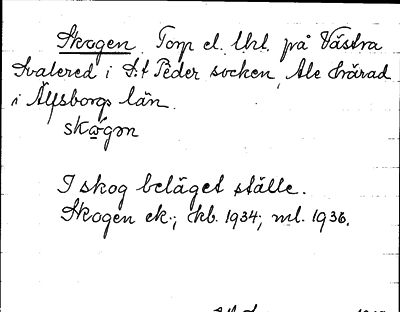 Skogen. Torp el. lht. på Västra
Svalered i S:t Peder socken, Ale härad
i Älfsborgs län.
skógən
I skog beläget ställe.
Skogen ek.; kb. 1934; ml. 1936.